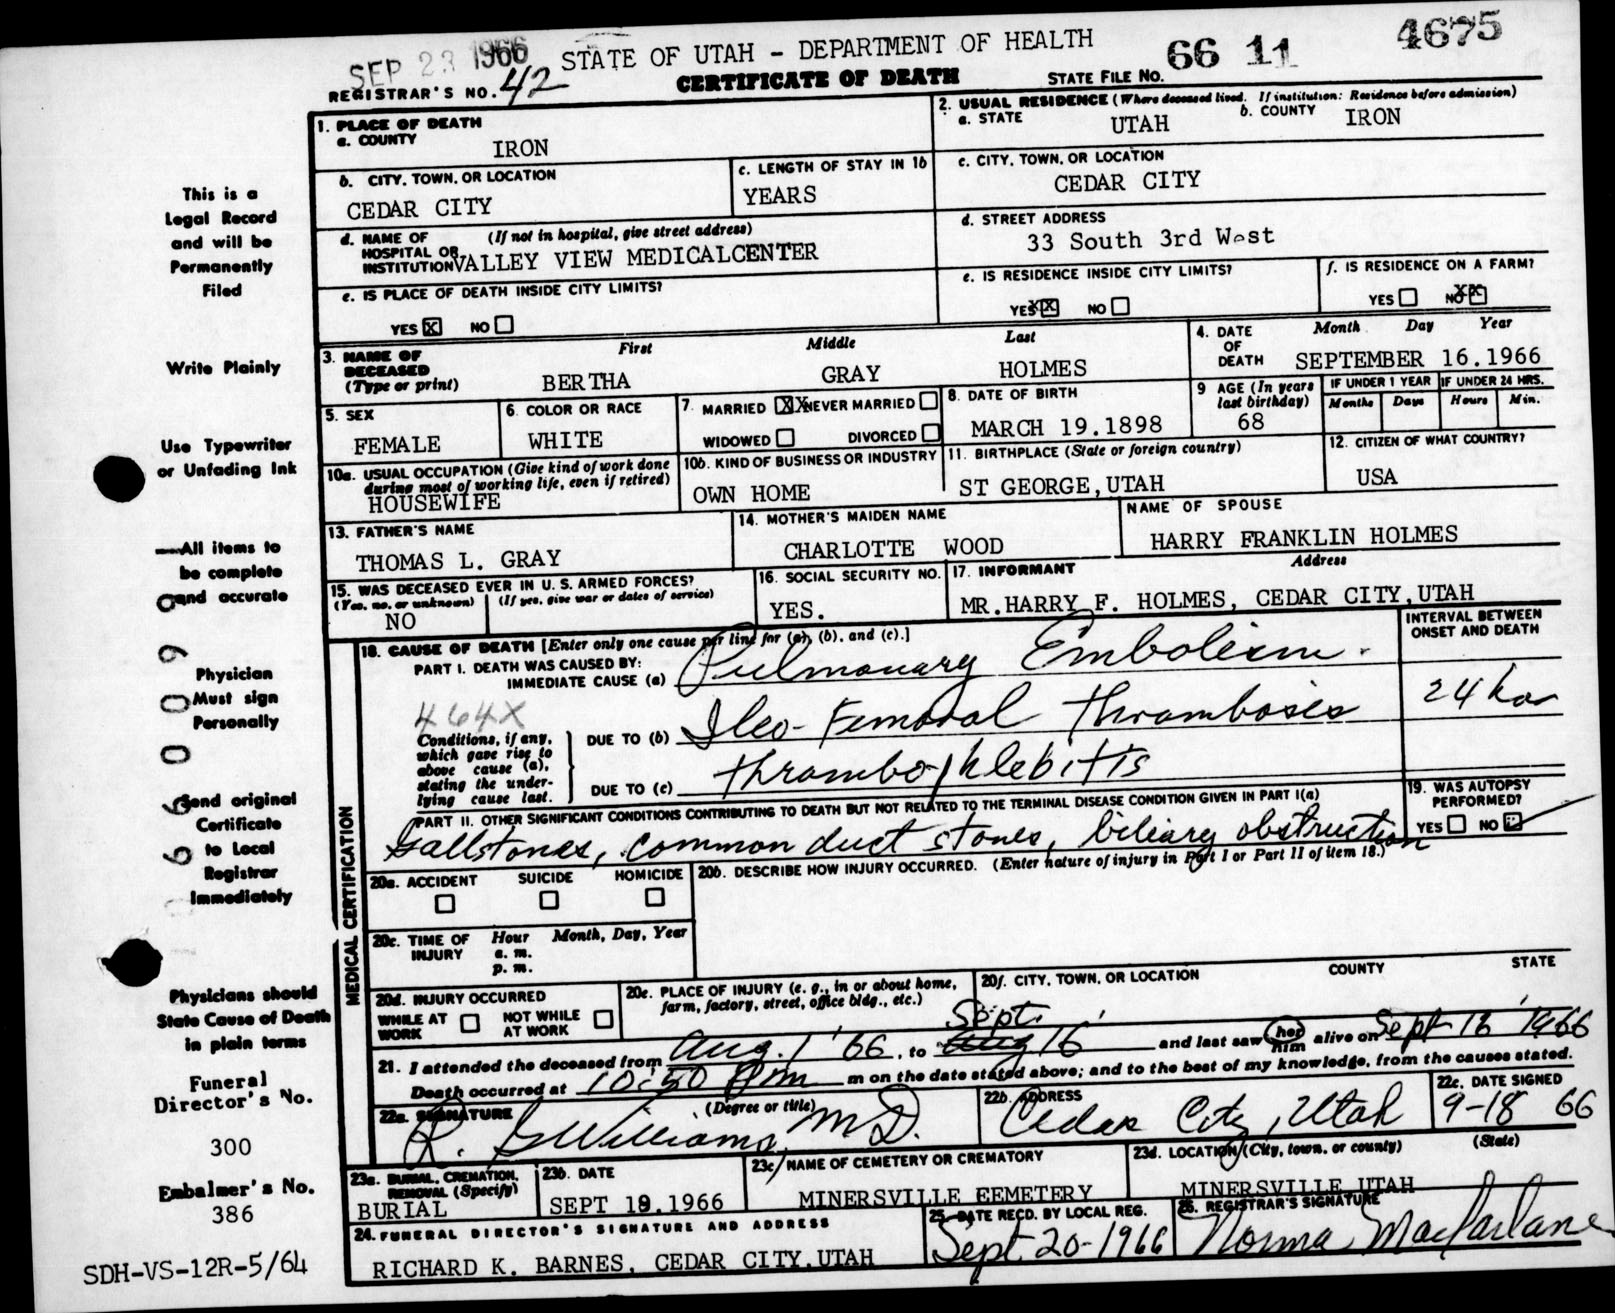 SEP 23 1966 STATE OF UTAH - DEPARTMENT OF HEALTH 66 11 4675
REGISTRAR'S NO. 42 CERTIFICATE OF DEATH STATE FILE NO.
1. PLACE OF DEATH
a. COUNTY
IRON
2. USUAL RESIDENCE (Where deceased lived. If institution: Residence before admission)
a. STATE UTAH b. COUNTY IRON
b. CITY, TOWN, OR LOCATION
CEDAR CITY
c. LENGTH OF STAY IN 1b
YEARS
c. CITY, TOWN, OR LOCATION
CEDAR CITY
d. NAME OF HOSPITAL OR INSTITUTION (If not in hospital, give street address)
VALLEY VIEW MEDICALCENTER
d. STREET ADDRESS
33 South 3rd West
e. IS PLACE OF DEATH INSIDE CITY LIMITS?
YES X NO
e. IS RESIDENCE INSIDE CITY LIMITS?
YES XX NO
f. IS RESIDENCE ON A FARM?
YES NO XX
3. NAME OF DECEASED (Type or print)
First Middle Last
BERTHA GRAY HOLMES
4. DATE OF DEATH Month Day Year
SEPTEMBER 16.1966
5. SEX
FEMALE
6. COLOR OR RACE
WHITE
7. MARRIED XX NEVER MARRIED
WIDOWED DIVORCED
8. DATE OF BIRTH
MARCH 19.1898
9 AGE (In years last birthday)
68
IF UNDER 1 YEAR IF UNDER 24 HRS.
Months Days Hours Min.
10a. USUAL OCCUPATION (Give kind of work done during most of working life, even if retired)
HOUSEWIFE
10b. KIND OF BUSINESS OR INDUSTRY
OWN HOME
11. BIRTHPLACE (State or foreign country)
ST GEORGE, UTAH
12. CITIZEN OF WHAT COUNTRY?
USA
13. FATHER'S NAME
THOMAS L. GRAY
14. MOTHER'S MAIDEN NAME
CHARLOTTE WOOD
NAME OF SPOUSE
HARRY FRANKLIN HOLMES
15. WAS DECEASED EVER IN U. S. ARMED FORCES?
(Yes, no, or unknown) (If yes, give war or dates of service)
NO
16. SOCIAL SECURITY NO.
YES.
17. INFORMANT Address
MR.HARRY F. HOLMES, CEDAR CITY, UTAH
MEDICAL CERTIFICATION
18. CAUSE OF DEATH [Enter only one cause per line for (a), (b), and (c).]
INTERVAL BETWEEN ONSET AND DEATH
PART I. DEATH WAS CAUSED BY:
IMMEDIATE CAUSE (a) Pulmonary Embolism.
464X
Conditions, if any, which gave rise to above cause (a), stating the underlying cause last.
DUE TO (b) Ileo-Femoral Thrombosis
24 hrs
DUE TO (c) thrombophlebitis
PART II. OTHER SIGNIFICANT CONDITIONS CONTRIBUTING TO DEATH BUT NOT RELATED TO THE TERMINAL DISEASE CONDITION GIVEN IN PART I(a)
Gallstones, common duct stones, biliary obstruction
19. WAS AUTOPSY PERFORMED?
YES NO
20a. ACCIDENT SUICIDE HOMICIDE
20b. DESCRIBE HOW INJURY OCCURRED. (Enter nature of injury in Part I or Part II of item 18.)
20c. TIME OF INJURY Hour Month, Day, Year
a. m.
p. m.
20d. INJURY OCCURRED
WHILE AT WORK NOT WHILE AT WORK
20e. PLACE OF INJURY (e. g., in or about home, farm, factory, street, office bldg., etc.)
20f. CITY, TOWN, OR LOCATION COUNTY STATE
21. I attended the deceased from Aug. 1 '66, to Aug Sept. 16 and last saw her him alive on Sept 16 1966
Death occurred at 10:50 pm m on the date stated above; and to the best of my knowledge, from the causes stated.
22a. SIGNATURE (Degree or title)
R. G Williams, MD.
22b. ADDRESS
Cedar City, Utah
22c. DATE SIGNED
9-18 66
23a. BURIAL, CREMATION, REMOVAL (Specify)
BURIAL
23b. DATE
SEPT 19.1966
23c. NAME OF CEMETERY OR CREMATORY
MINERSVILLE CEMETERY
23d. LOCATION (City, town, or county) (State)
MINERSVILLE UTAH
24. FUNERAL DIRECTOR'S SIGNATURE AND ADDRESS
RICHARD K. BARNES, CEDAR CITY, UTAH
25. DATE RECD. BY LOCAL REG.
Sept 20-1966
26. REGISTRAR'S SIGNATURE
Norma Macfarlane
This is a
Legal Record
and will be
Permanently
Filed
Write Plainly
Use Typewriter
or Unfading Ink
All items to
be complete
and accurate
Physician
Must sign
Personally
Send original
Certificate
to Local
Registrar
Immediately
Physicians should
State Cause of Death
in plain terms
Funeral
Director's No.
300
Embalmer's No.
386
SDH-VS-12R-5/64